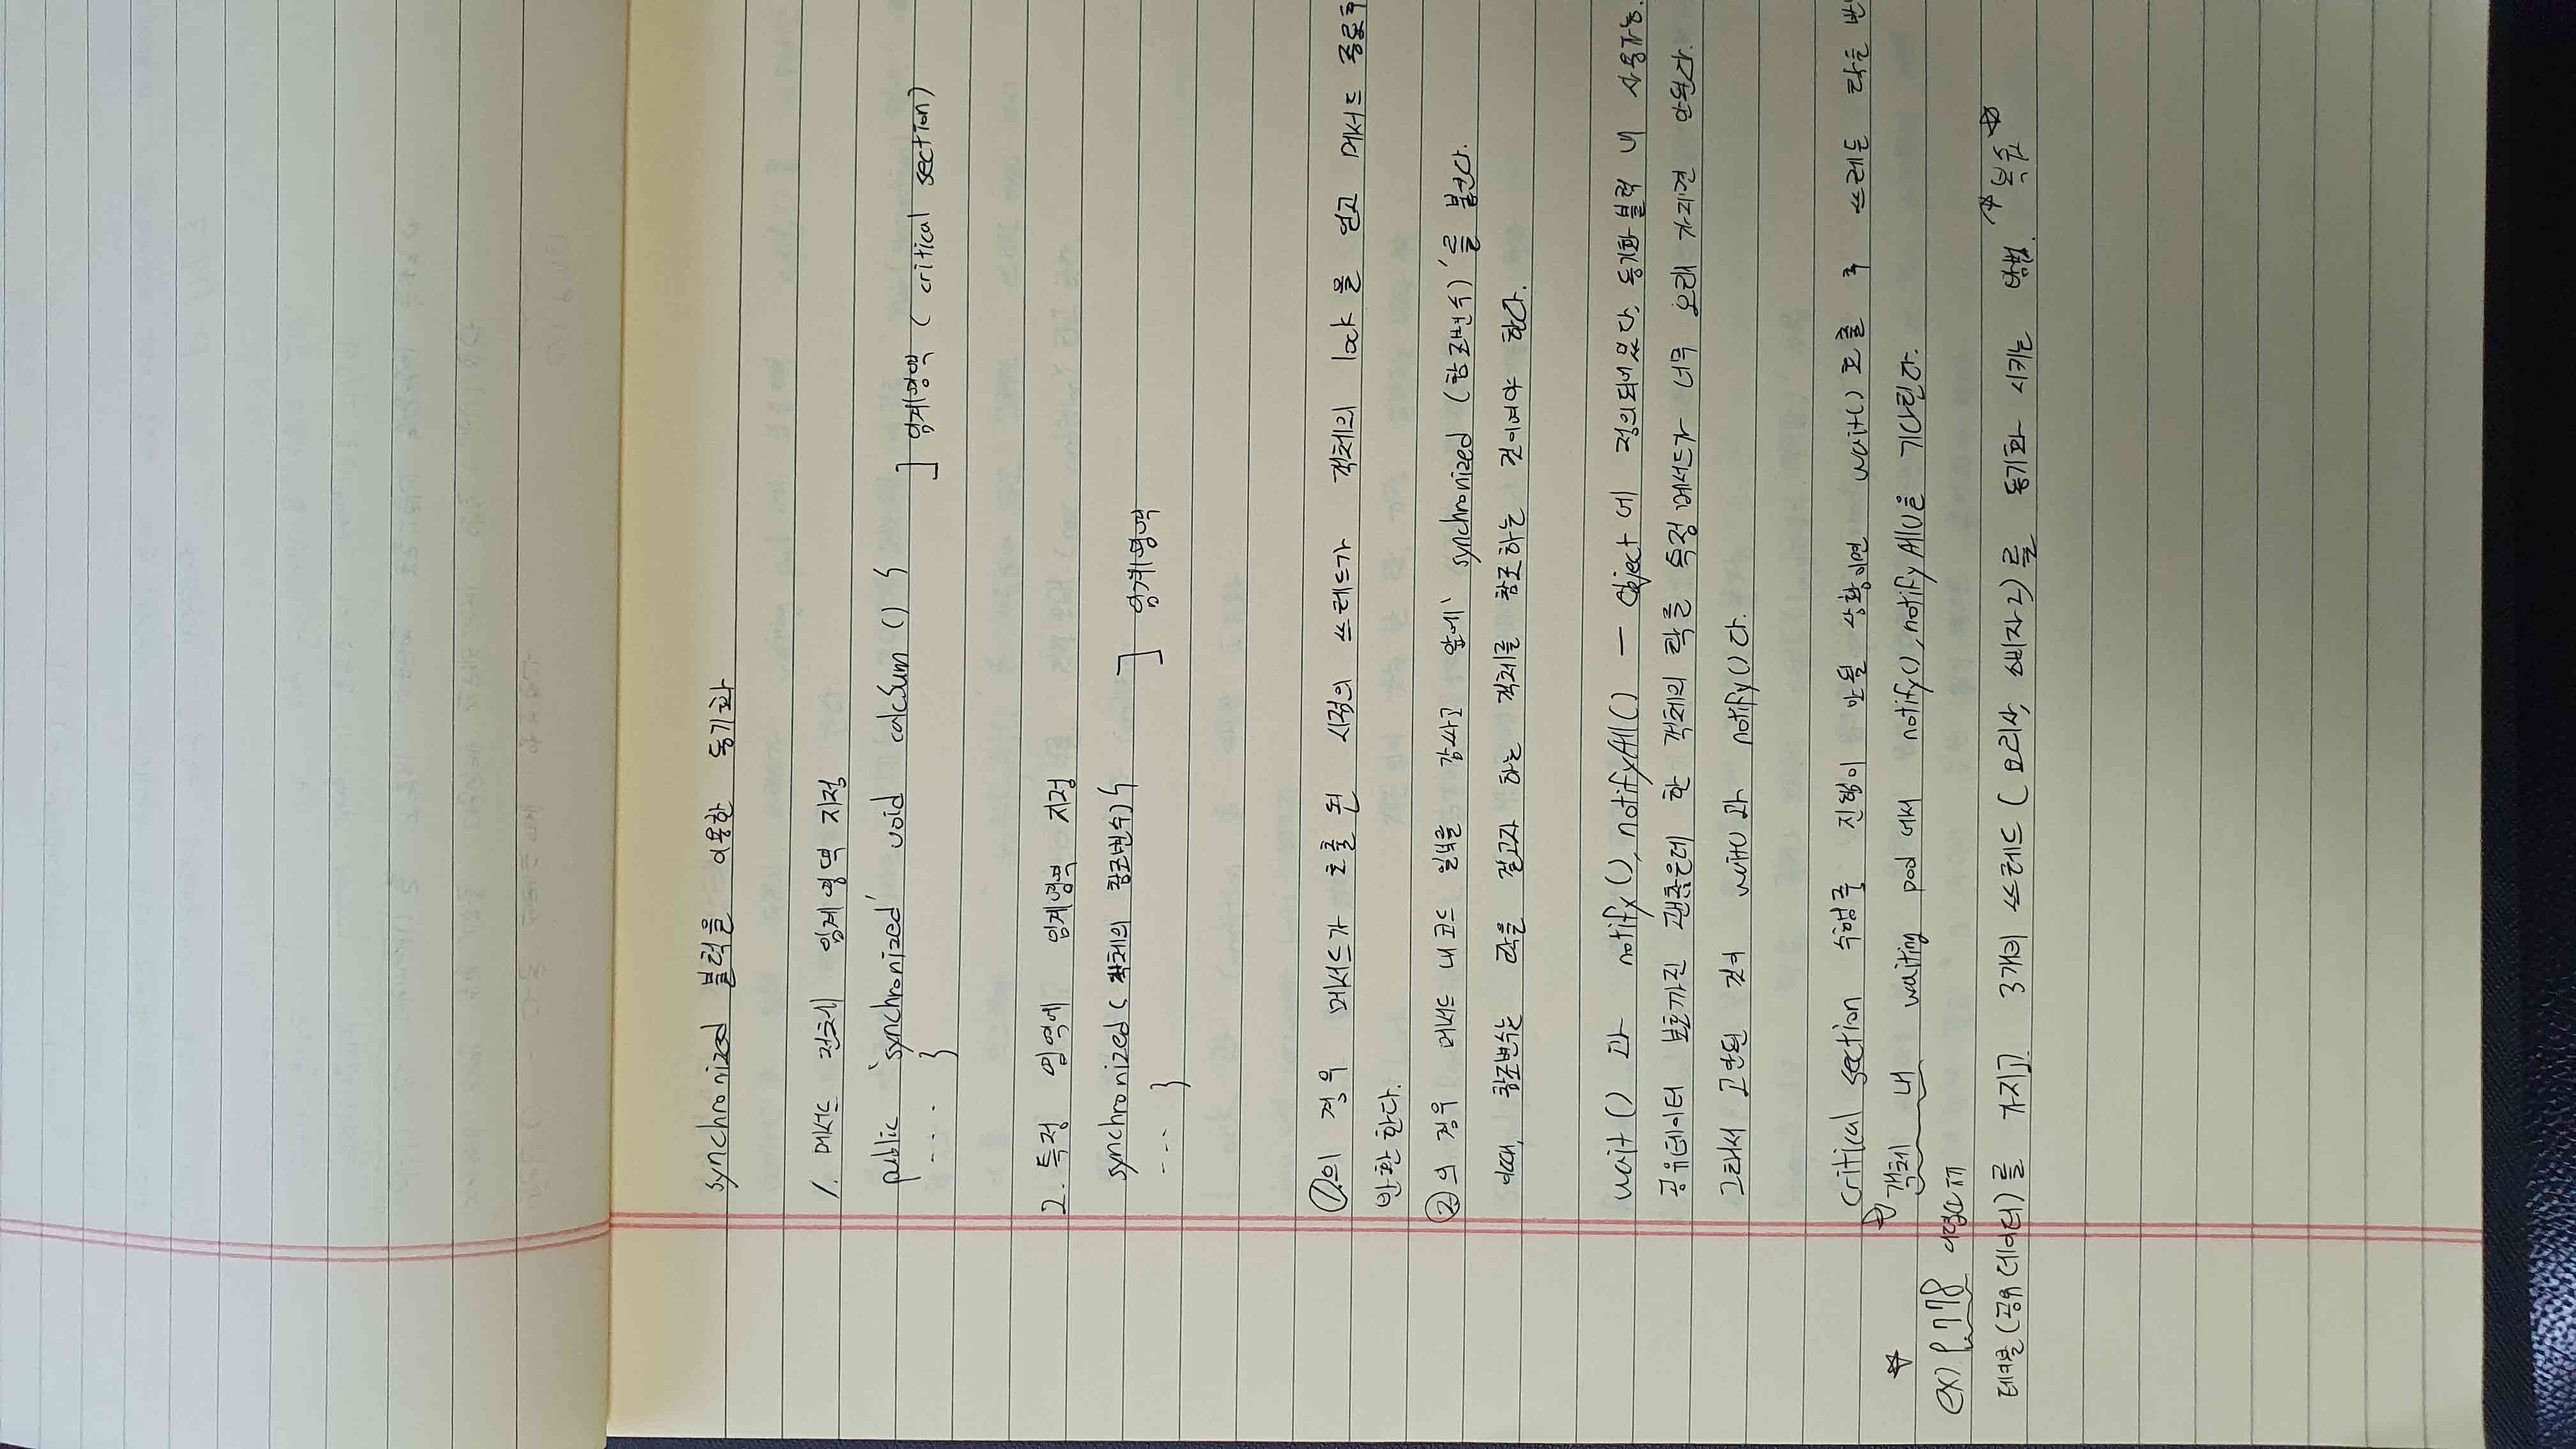 synchronized 블럭을 이용한 동기화
1. 메서드 전체 임계영역 지정
public 'synchronized' void calcSum () {
---- } ] 임계영역 ( critical section )
2. 특정 영역에 임계영역 지정
synchronized ( 객체의 참조변수) {
--- } ] 임계영역
①의 경우 메서드가 호출 된 시점의 쓰레드가 객체의 lock 을 얻고 메서드 종료후
반환 한다.
②의 경우 메서드 내 코드 일부를 감싸고 앞에 'synchronized (참조변수)'를 붙인다.
이때, 참조변수는 락을 걸고자 하는 객체를 참조하는 것이여야 한다.
wait () 과 notify (), notifyAll () — Object 에 정의되어있다, 동기화 블럭 내 사용가능.
공유데이터 보호까진 괜찮은데 한 객체의 락를 특정 메서드가 너무 오래 가지면 안된다.
그래서 고안된 것이 wait() 과 notify () 다.
critical section 수행중 진행이 안될 상황이면 wait() 호출 후 쓰레드 락을 반
객체 내 waiting pod 에서 notify(), notifyAll()을 기다린다.
ex) p.778
테이블(공유데이터)를 가지고 3개의 쓰레드 ( 요리사, 소비자2)를 동기화 시키는 방법. ☆복습☆